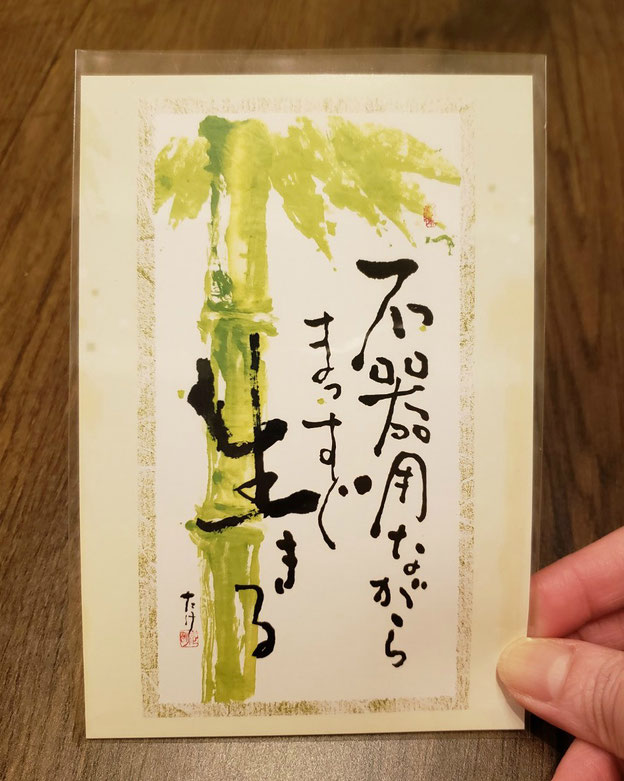 不器用ながら
まっすぐ
生きる
たけ